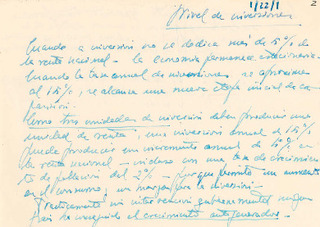 1/22/1
2
Nivel de inversiones
Cuando a inversión no se dedica más de 5% de
la renta nacional — la economía permanece estacionaria.
Cuando la tasa anual de inversiones se aproxima
al 15%, se alcanza una nueva etapa inicial de ex-
pansión.
Como tres unidades de inversión deben producir una
unidad de renta, una inversión anual de 15%
puede producir un incremento anual de 5% en
la renta nacional — incluso con una tasa de crecimien-
to de población del 2% — porque permite un aumento
en el consumo, un margen para la inversión —
Prácticamente sin intervención gubernamental ningún
país ha conseguido el crecimiento autogenerador —